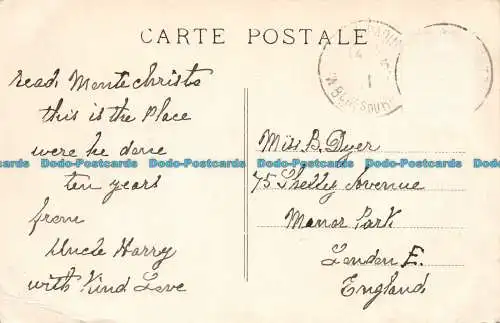 CARTE POSTALE
read Monte christo
this is the Place
were he done
ten years
from
Uncle Harry
with Kind Love
Miss B. Dyer
75 Shelly Avenue
Manor Park
London E.
England
Dodo-Postcards Dodo-Postcards Dodo-Postcards Dodo-Postcards Dodo-Postcards
Dodo-Postcards Dodo-Postcards Dodo-Postcards Dodo-Postcards Dodo-Postcards